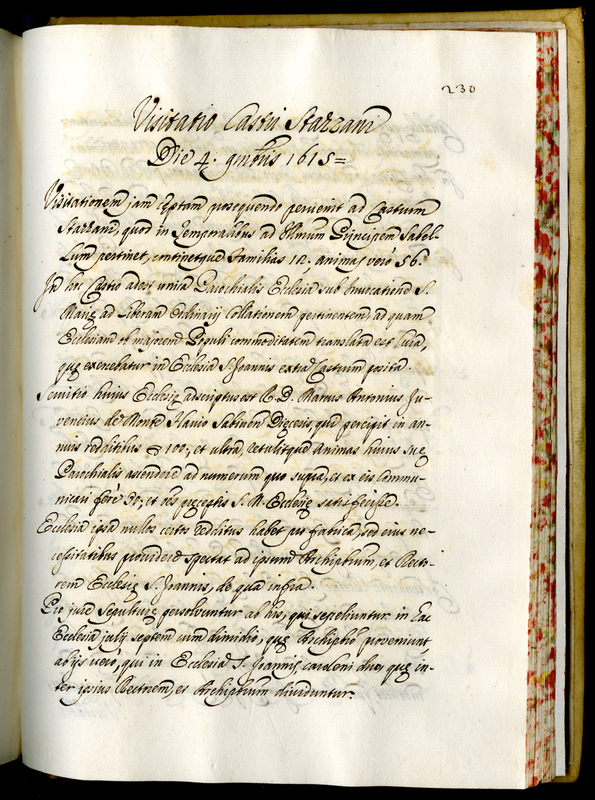 230
Visitatio Castri Stazzani
Die 4. 9mbris 1615=
Visitationem jam ceptam prosequendo pervenit ad Castrum
Stazzani, quod in Temporalibus ad Illmum Principem Sabel-
lum pertinet, continetque familias 12. animas verò 56.
In hoc Castro adest unica Parochialis Ecclesia sub Invocatione S.
Marię ad liberam Ordinarij Collationem pertinentem, ad quam
Ecclesiam ob majorem Populi commoditatem translata est Cura,
quę exercebatur in Ecclesia S. Joannis extra Castrum posita.
Servitio huius Ecclesię adscriptus est R. D. Marcus Antonius Ju-
vencius de Monte Flavio Sabinen Dięcesis, qui percipit in an-
nuis redditibus 100; et ultra, retulitque animas huius suę
Parochialis ascendere ad numerum quo supra, et ex eis Commu-
nicari fore 30; et oes preceptis S. M. Ecclesię satisfecisse.
Ecclesia ipsa nullos certos redditus habet pro fabrica, sed eius ne-
cessitatibus providere spectat ad ipsum Archiptrum, et Recto-
rem Ecclesię S. Joannis, de qua infra.
Pro jure Sepulturę persolvuntur ab his, qui sepeliuntur in hac
Ecclesia julij septem cum dimidio, quę Archiptro proveniunt,
ab ijs vero, qui in Ecclesia S. Joannis caroleni duo, quę in-
ter ipsius Rectorem, et Archiptrum dividuntur.